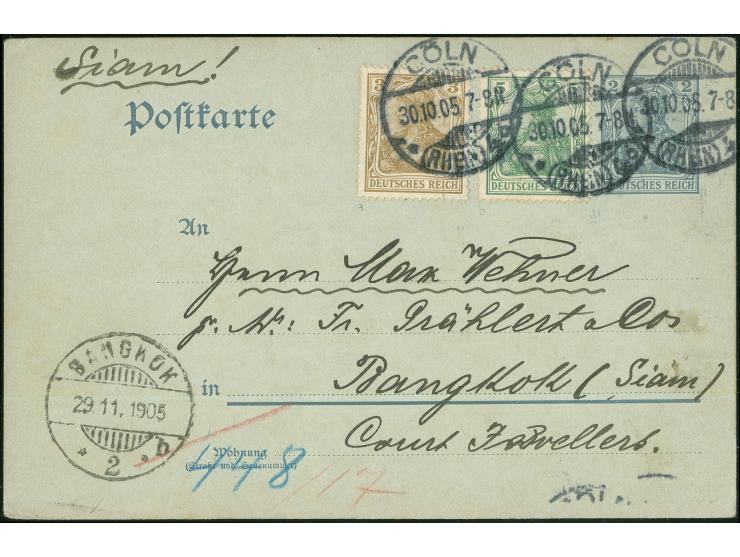 Siam!
Postkarte
CÖLN
30.10.05. 7-8N
(RHEIN)
CÖLN
30.10.05. 7-8N
(RHEIN)
CÖLN
30.10.05. 7-8
(RHEIN)
3
DEUTSCHES REICH
5
DEUTSCHES REICH
2 2
DEUTSCHES REICH
An
Herrn Max Wehner
p. Adr: Fr. Grählert & Cos
in Bangkok (Siam)
Court Jewellers.
BANGKOK
29.11.1905
* 2 * b
Wohnung
(Straße und Hausnummer)
448/17
CÖLN